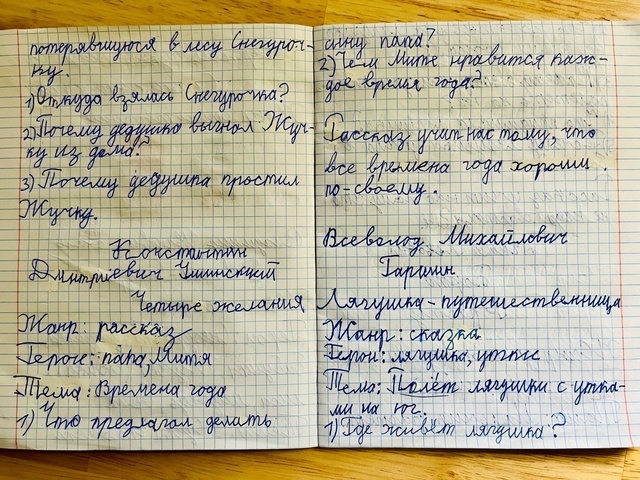 потерявшуюся в лесу Снегуроч-
ку.
1) Откуда взялась Снегурочка?
2) Почему дедушка выгнал Жуч-
ку из дома?
3) Почему дедушка простил
Жучку.
Константин
Дмитриевич Ушинский
Четыре желания
Жанр: рассказ
Герои: папа, Митя
Тема: Времена года
1) Что предлагал делать
сыну папа?
2) Чем Мите нравится каж-
дое время года?
Рассказ учит нас тому, что
все времена года хороши
по-своему.
Всеволод Михайлович
Гаршин
Лягушка-путешественница
Жанр: сказка
Герои: лягушка, утки
Тема: Полёт лягушки с утка-
ми на юг.
1) Где живёт лягушка?